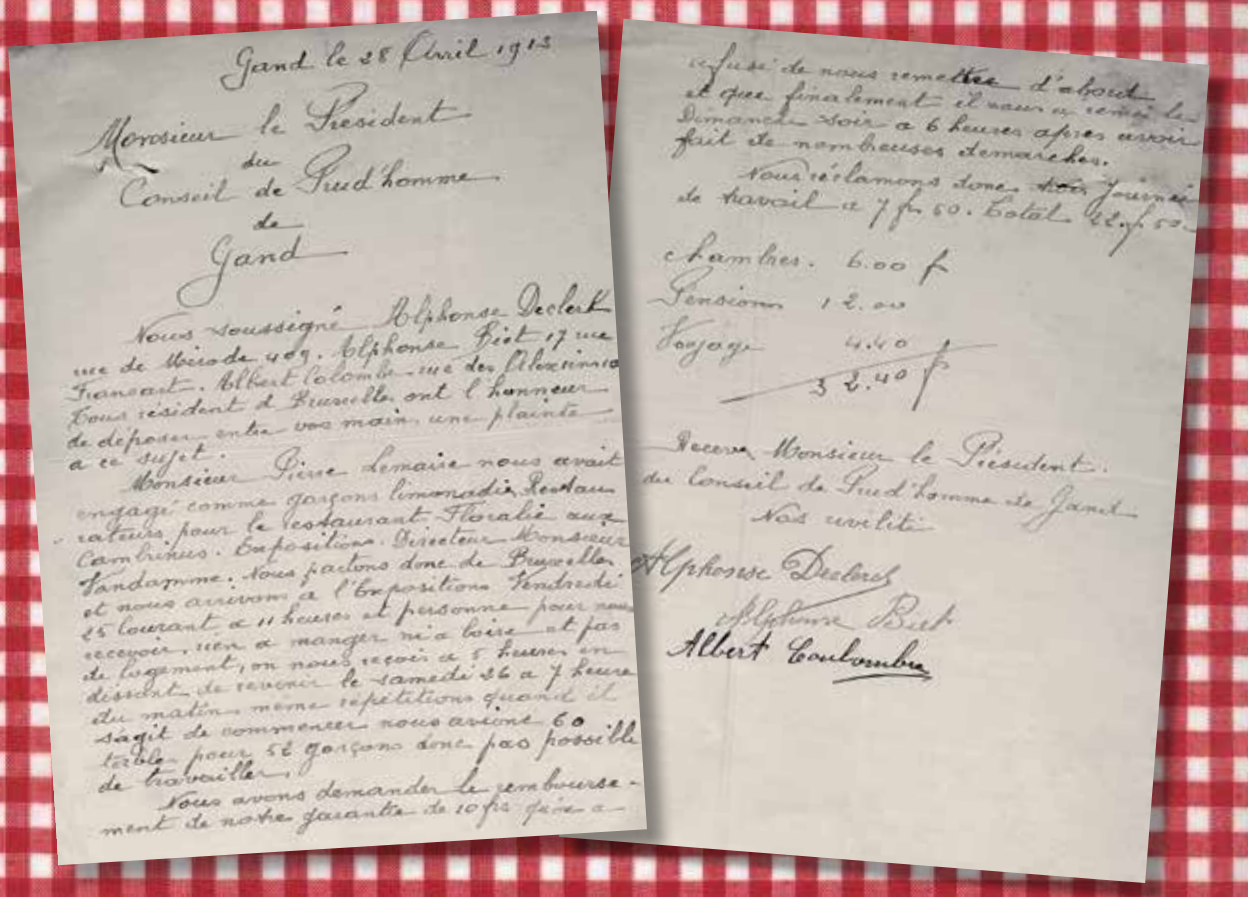 Gand le 28 Avril 1913
Monsieur le President
du
Conseil de Prud'homme
de
Gand
Nous soussigné Alphonse Declerck
rue de Mérode 409. Alphonse Biot 17 rue
Transart. Albert Colombe rue des Alexiens 10
Tous résident a Bruxelles ont l'honneur
de déposer entre vos main, une plainte
a ce sujet.
Monsieur Pierre Lemaire nous avait
engagé comme garçons limonadie, Restau
rateurs pour le restaurant Floralie aux
Cambrinus. Expositions. Directeur Monsieur
Vandamme. Nous partons donc de Bruxelles
et nous arrivons a l'Expositions Vendredi
25 courant a 11 heures et personne pour nous
recevoir, rien a manger ni a boire et pas
de logement, on nous reçois a 5 heures en
dissant de revenir le samedi 26 a 7 heure
du matin meme repetitions quand il
sagit de commencer nous avions 60
tables pour 52 garçons donc pas possible
de travailler.
Nous avons demander le rembourse-
ment de notre garantie de 10 frs qu'on a
refusé de nous remettre d'abord
et que finalement il nous a remis le
Dimanche soir a 6 heures apres avoir
fait de nombreuses demarches.
Nous réclamons donc trois Journée
de travail a 7 fr 50. Total 22. fr 50.
chambres. 6.00 f
Pensions 12.00
Voyage 4.40
32.40 f
Recevez Monsieur le Président.
du Conseil de Prud'homme de Gand
Nos civilité
Alphonse Declerck
Alphonse Biot
Albert Coulombre